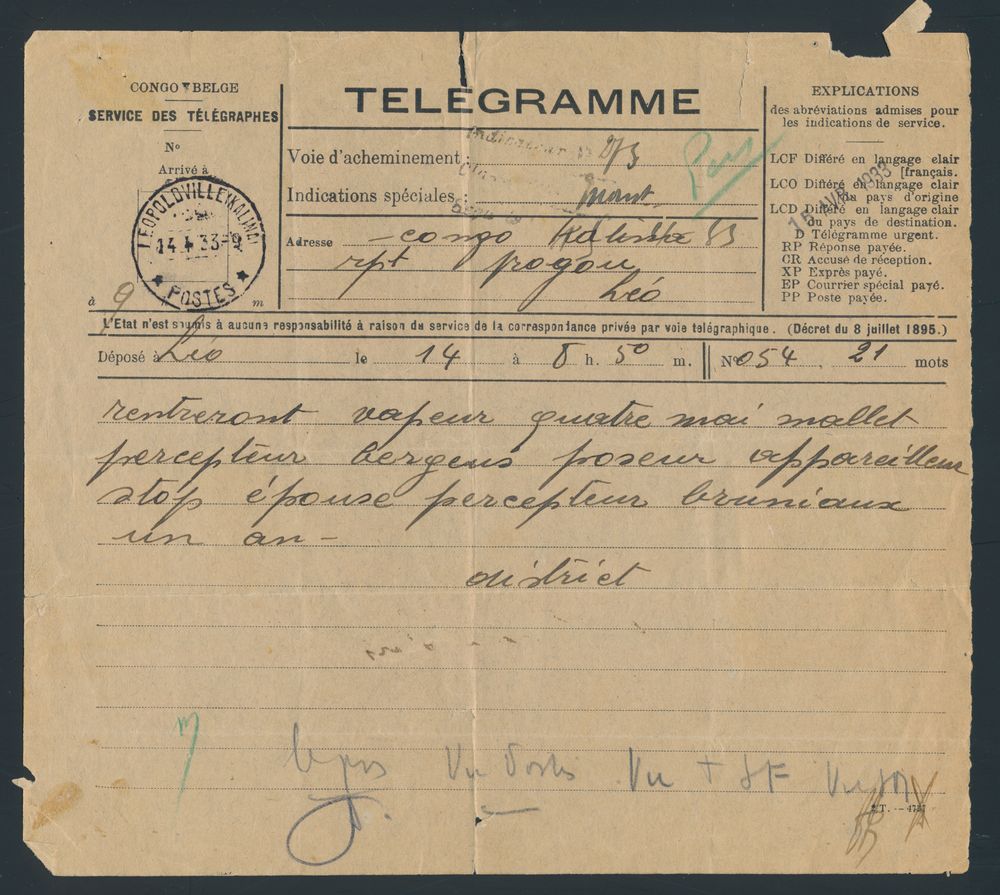 CONGO BELGE
SERVICE DES TÉLÉGRAPHES
No
Arrivé à
LEOPOLDVILLE (KALINA)
14.4.33-9
POSTES
à 9 m
TELÉGRAMME
Voie d'acheminement : 2/3
Indications spéciales :
Adresse — congo Kalina 83
rpt
Léo
EXPLICATIONS
des abréviations admises pour
les indications de service.
LCF Différé en langage clair
[français.
LCO Différé en langage clair
du pays d'origine
LCD Différé en langage clair
du pays de destination.
D Télégramme urgent.
RP Réponse payée.
CR Accusé de réception.
XP Exprès payé.
EP Courrier spécial payé.
PP Poste payée.
15 AVR 1933
L'Etat n'est soumis à aucune responsabilité à raison du service de la correspondance privée par voie télégraphique. (Décret du 8 juillet 1895.)
Déposé à Léo le 14 à 8 h. 50 m. No 054 21 mots
rentreront vapeur quatre mai mallet
percepteur bergens poseur appareilleur
stop épouse percepteur bruniaux
un an -
district